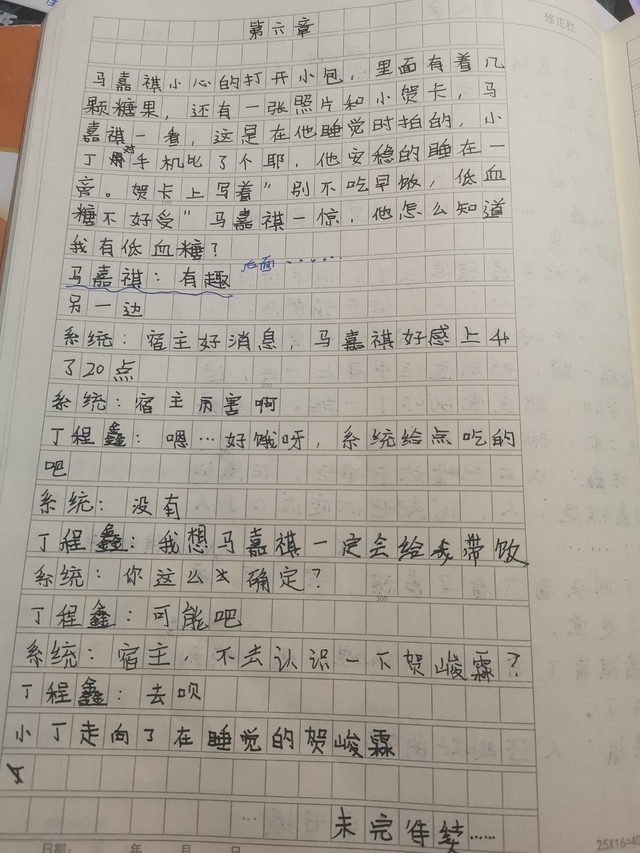 修正栏
第六章
马嘉祺小心的打开小包，里面有着几
颗糖果，还有一张照片和小贺卡，马
嘉祺一看，这是在他睡觉时拍的，小
丁对手机比了个耶，他安稳的睡在一
旁。贺卡上写着"别不吃早饭，低血
糖不好受"马嘉祺一惊，他怎么知道
我有低血糖？
后面……
马嘉祺：有趣
另一边
系统：宿主好消息，马嘉祺好感上升
了20点
系统：宿主厉害啊
丁程鑫：嗯…好饿呀，系统给点吃的
吧
系统：没有
丁程鑫：我想马嘉祺一定会给我带饭
系统：你这么确定？
300
丁程鑫：可能吧
系统：宿主，不去认识一下贺峻霖？
丁程鑫：去呗
小丁走向了在睡觉的贺峻霖
未完待续……
日期： 年 月 日